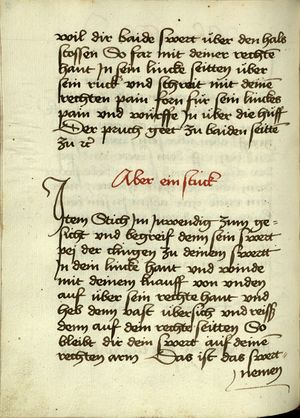 wil dir baide swert über den hals
stossen So far mit deiner rechten
hant In sein lincke seitten über
sein ruck und schreit mit deinē
rechten pain forn für sein linckes
pain und würffe In über die hüff
Der pruch geet zu baiden seittē
zu rc
Aber ein stuck
Item Stich Im Inwendig zum ge-
sicht und begreif denn sein swert
pej der clingen zu deinem swertt
In dein lincke hant und winde
mit deinem knauff von unden
auf über sein rechte hant und
heb denn vast übersich und reiss
denn auf dein rechte seitten So
bleibt dir dein swert auf deinē
rechten arm Das ist das swert-
nemen